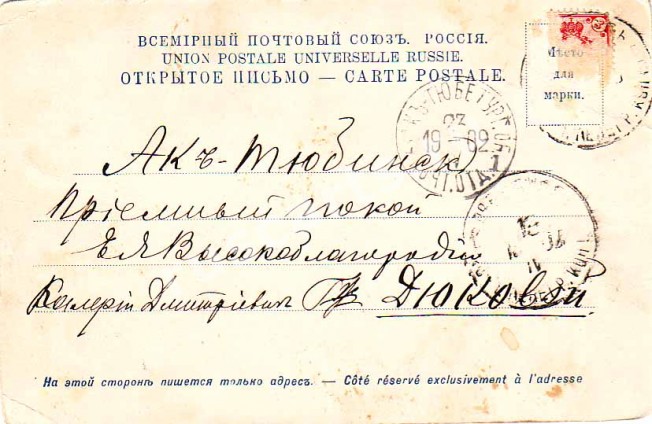 ВСЕМІРНЫЙ ПОЧТОВЫЙ СОЮЗЪ. РОССІЯ.
UNION POSTALE UNIVERSELLE RUSSIE.
ОТКРЫТОЕ ПИСЬМО — CARTE POSTALE.
Мѣсто
для
марки.
АКЪ-ТЮБЕ ТУРГ. ОБ.
23
19 02
ПОЧТ. ОТД. 1
Акъ-Тюбинскъ
Пріемный покой
Ея Высокоблагородію
Валеріи Дмитріевнѣ
Дюковой.
На этой сторонѣ пишется только адресъ. — Côté réservé exclusivement à l'adresse